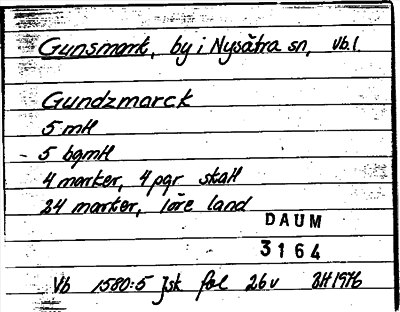 Gunsmark, by i Nysätra sn, Vb.l.
Gundzmarck
5 mtl
5 bgmtl
4 marker, 4 pgr skatt
24 marker, 1 öre land
DAUM
3164
Vb 1580:5 Jsk fol 26v BH 1976